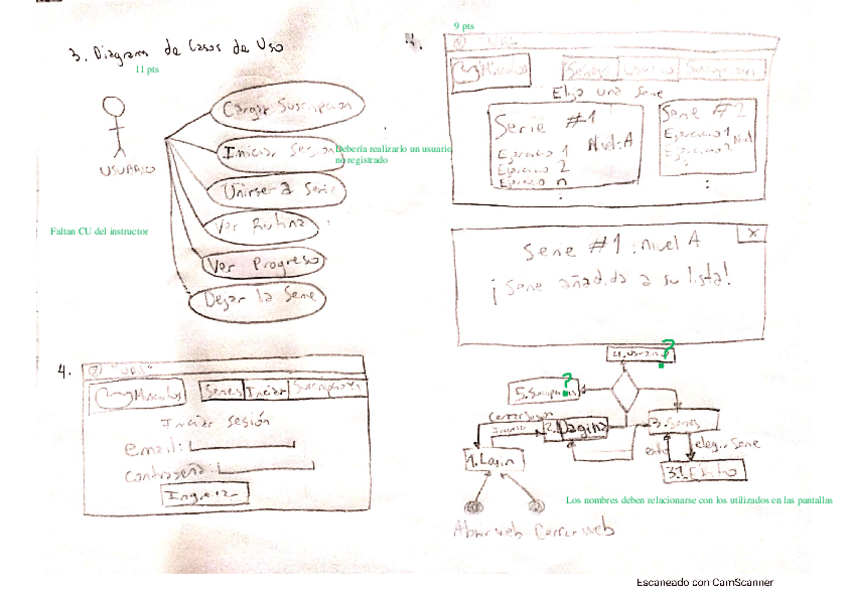 3. Diagrama de Casos de Uso
11 pts
USUARIO
Cargar Suscripcion
Iniciar Sesion
Debería realizarlo un usuario
no registrado
Unirse a Serie
Ver Rutina
Ver Progreso
Dejar la Serie
Faltan CU del instructor
4.
Musculos
Series
Iniciar
Suscripciones
Iniciar sesión
email:
contraseña:
Ingresar
9 pts
4.
Musculos
Series
Usuario
Suscripciones
Elija una serie
Serie #1
Nivel: A
Ejercicio 1
Ejercicio 2
Ejercicio n
Serie #2
Ejercicio 1
Ejercicio 2
Serie #1: Nivel A
X
¡Serie añadida a su lista!
4. Usuario
?
?
cerrar sesion
2. Pagina
3. Series
1. Login
elegir serie
3.1 Exito
Los nombres deben relacionarse con los utilizados en las pantallas
Abrir web Cerrar web
Escaneado con CamScanner